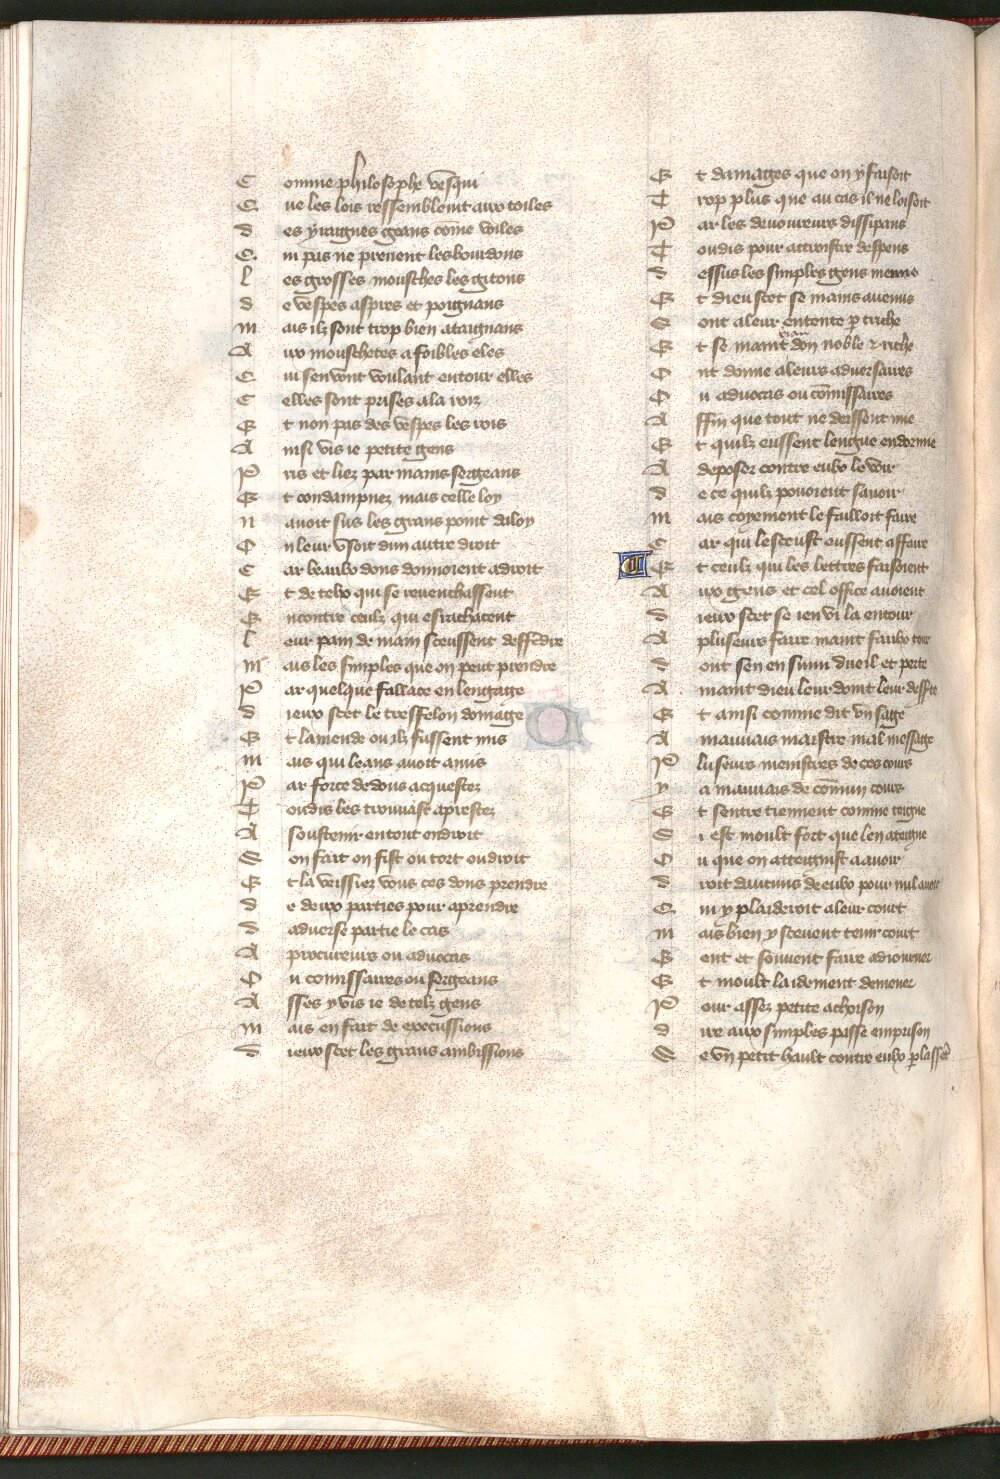 Comme philosophe vesqui
Que les lois ressembleint aux toiles
des yraignes grans come voiles
Qui pas ne prenent les bourdons
les grosses mousches les gitons
de vespes aspres et poignans
mais ilz sont trop bien ataignans
Aux mouschetes a foibles eles
Qui sen vont voulant entour elles
Celles sont prises a la roiz
Et non pas des vespes les rois
Ainsi vis ie petite gens
Pris et liez par mains sergeans
Et condampnez mais celle loy
navoit sus les grans point daloy
On leur vsoit dun autre droit
Car beaux dons donnoient adroit
Et de telx qui se revenchassent
Encontre ceulz qui
leur pain de main sceussent deffedre
mais les simples que on peut prendre
Par quelque fallace en lengage
dieux scet le tresfelon domage
Et lamende ou ilz fussent mis
mais qui leans avoit amis
Par force de dons acquestez
Toudis les trouvast aprestez
A soustenir en tout endroit
Son fait on fist ou tort ou droit
Et la veissiez vous ces dons prendre
de deux parties pour aprendre
dadverse partie le cas
A procureurs ou advocas
Ou comissaires ou sergeans
Asses y vis ie de telz gens
mais en fait de execussions
dieux scet les grans ambissions
Et damages que on y faisoit
Trop plus que au cas il ne loisoit
Par les devoureurs dissipans
Toudis pour accroistre despens
dessus les simples gens menus
Et dieu scet se mains avenus
Sont a leur entente p triche
Et se maint don noble & riche
Ont donne a leurs adversaires
Ou advocas ou comissaires
Affin que tout ne deissent mie
Et quilz eussent lengue endormie
A deposer contre eulx le voir
de ce quilz povoient savoir
mais coyement le failloit faire
Car qui lesceust eussent affaire
Et ceulz qui les lettres faisoient
Aux gens et cel office avoient
dieux scet se ien vi la entour
A pluseurs faire maint faulx tour
dont sen ensuiui dueil et perte
A maint dieu leur doint leur
Et ainsi comme dit vn sage
A mauvais maistre mal message
Pluseurs menistres de ces cours
y a mauvais de comun cours
Et sentretiennent comme teigne
Si est moult fort que len ateigne
Ou que on atteignist a avoir
droit daucuns deulx pour nul avoir
Qui y plaideroit a leur court
mais bien y scevent tenir court
Gent et souvent faire adiourner
Et moult laidement demener
Pour assez petite achoison
dire aux simples passe em prison
Se vn petit hault contre eulx